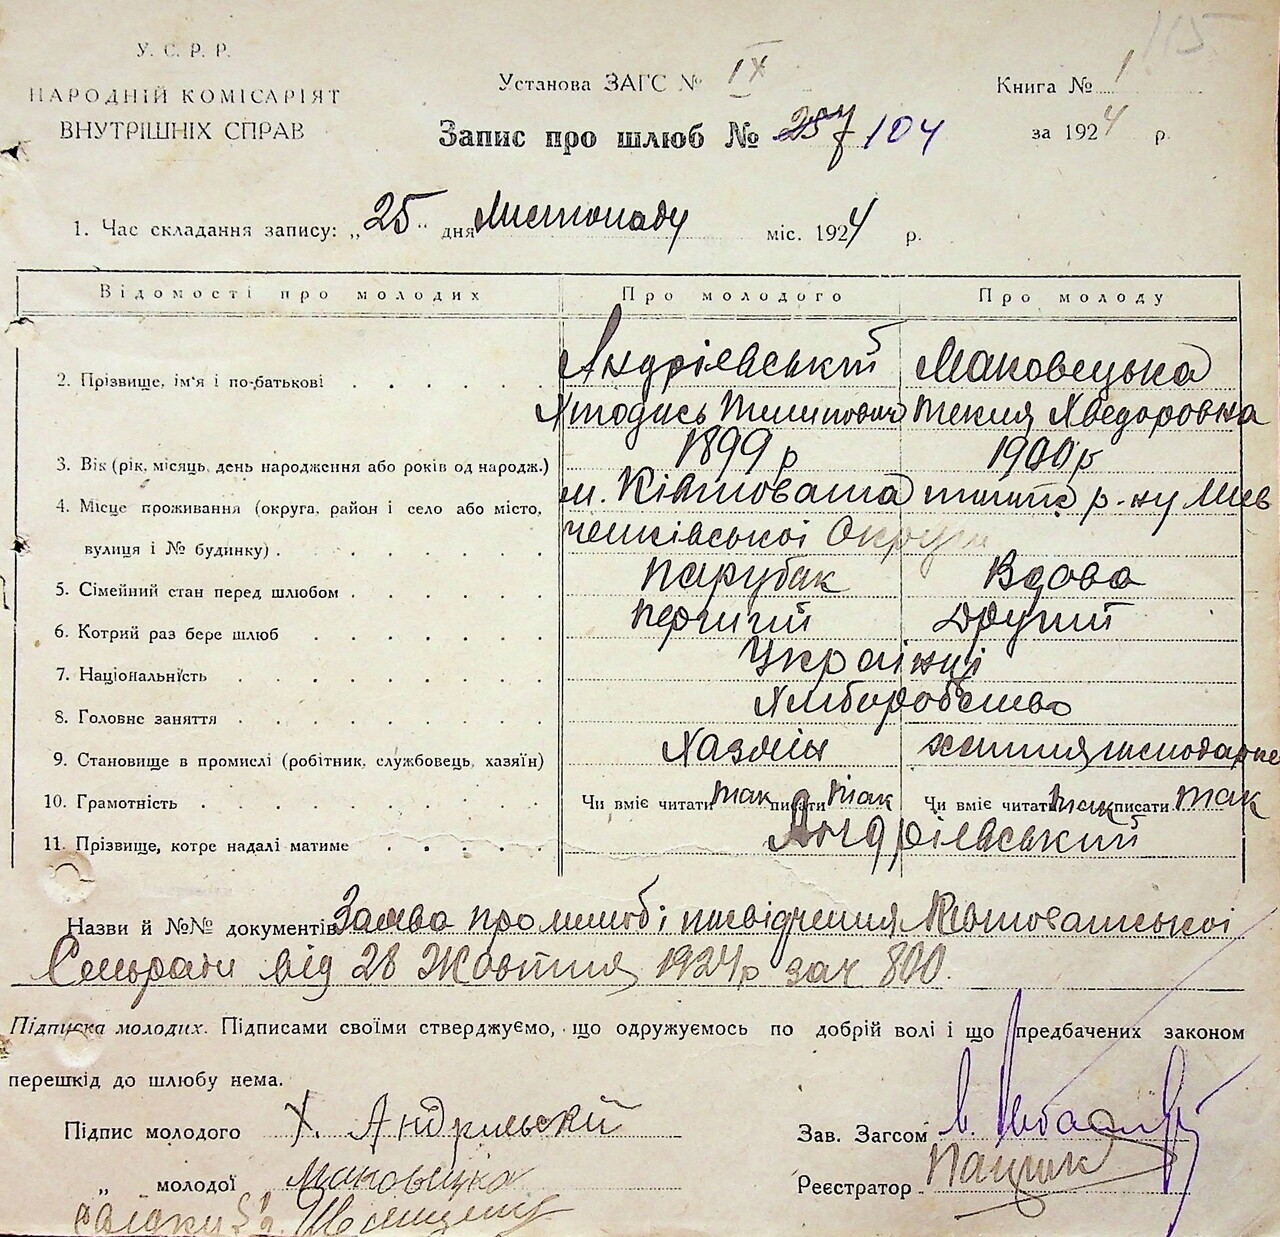 115
У. С. Р. Р.
НАРОДНІЙ КОМІСАРІЯТ
ВНУТРІШНІХ СПРАВ
Установа ЗАГС № IX
Запис про шлюб № 257 104
Книга № 1
за 1924 р.
1. Час складання запису: „25" дня Листопаду міс. 1924 р.
Відомості про молодих
Про молодого
Про молоду
2. Прізвище, ім'я і по-батькові
Андріевський
Маковецька
Пилипович
Текля Хведоровна
3. Вік (рік, місяць, день народження або років од народж.)
1899 р
1900 р
4. Місце проживання (округа, район і село або місто,
вулиця і № будинку)
м. Ківшовата р-ну Шев
ченківської Округи
5. Сімейний стан перед шлюбом
парубак
Вдова
6. Котрий раз бере шлюб
перший
Другий
7. Національність
Українці
8. Головне заняття
Хліборобство
9. Становище в промислі (робітник, службовець, хазяїн)
Хазяін
10. Грамотність
Чи вміє читати так писати так
Чи вміє читати так писати так
11. Прізвище, котре надалі матиме
Андріевський
Назви й №№ документів Заява про шлюб і посвідчення Ківшоватської
Сельради від 28 Жовтня 1924 р за № 800.
Підписка молодих. Підписами своїми стверджуємо, що одружуємось по добрій волі і що предбачених законом
перешкід до шлюбу нема.
Підпис молодого Х. Андрієвский
Зав. Загсом
„ молодої Маковецка
Реєстратор